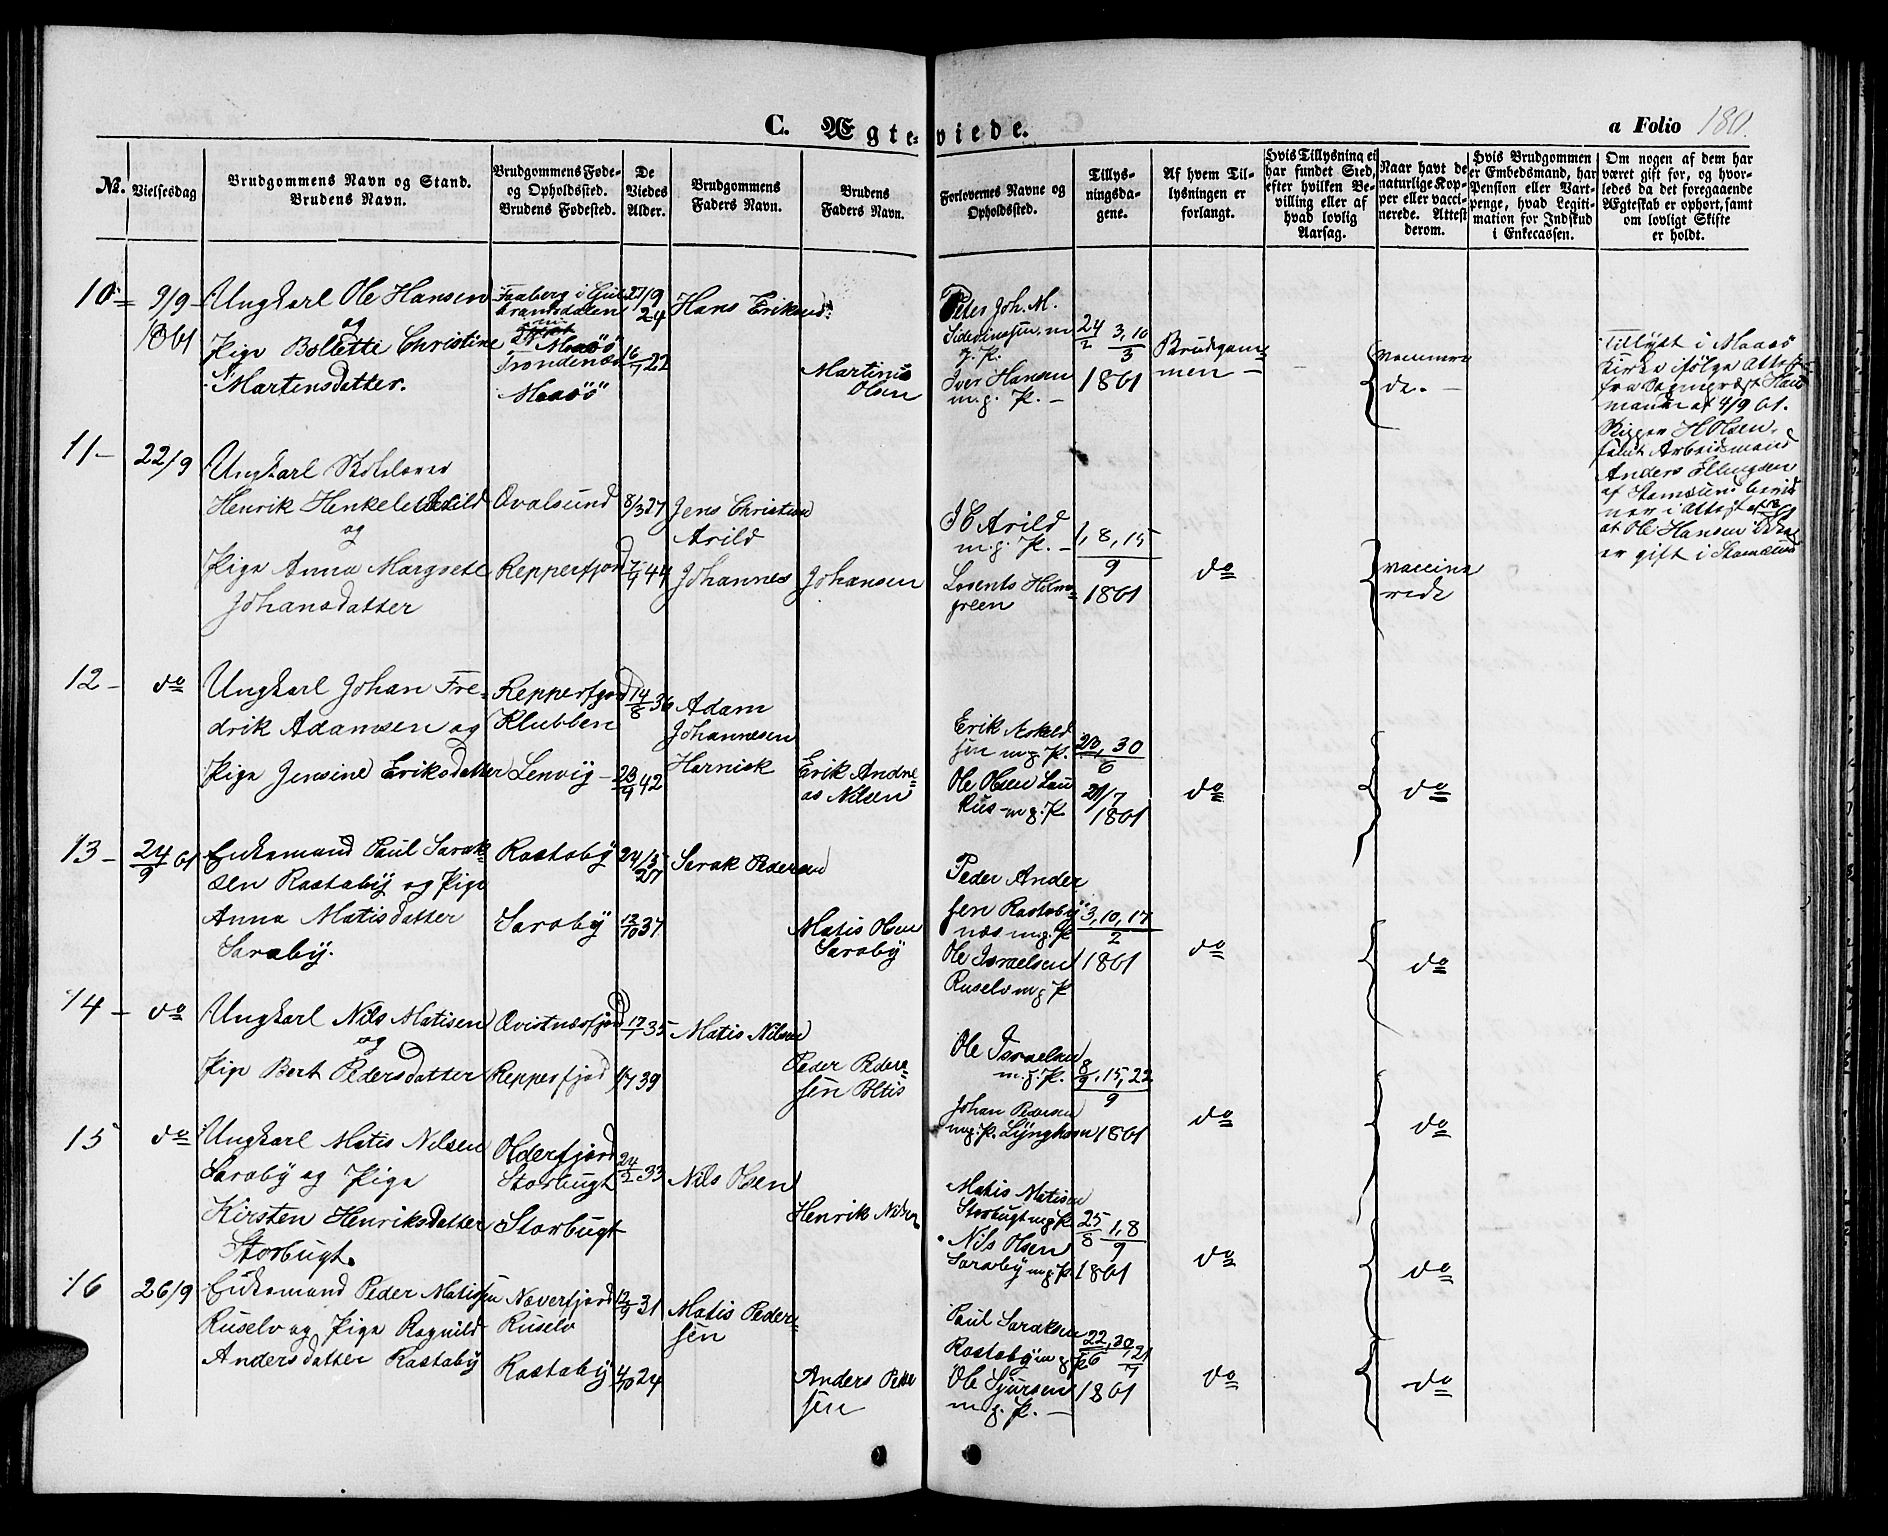 C. Ægteviede.
a Folio 180.
No.
Vielsesdag
Brudgommens Navn og Stand.
Brudens Navn.
Brudgommens Føde-
og Opholdssted.
Brudens Fødested.
De
Viedes
Alder.
Brudgommens
Faders Navn.
Brudens
Faders Navn.
Forlovernes Navne og
Opholdssted.
Tillys-
ningsda-
gene.
Af hvem Til-
lysningen er
forlangt.
Hvis Tillysning ei
har fundet Sted,
efter hvilken Be-
villing eller af
hvad lovlig
Aarsag.
Naar havt de
naturlige Kop-
per eller vacci-
nerede. Attest
derom.
Hvis Brudgommen
er Embedsmand, har
Pension eller Vart-
penge, hvad Legiti-
mation for Indskud
i Enkecassen.
Om nogen af dem har
været gift før, og hvor-
ledes da det foregaaende
Ægteskab er ophørt, samt
om lovligt Skifte
er holdt.
10
9/9
1861
Ungkarl Ole Hansen
og
Pige Bollette Christine
Martensdatter.
Faaberg i Gul-
brandsdalen
Maasö
Trondenæs
Maasö
27/9
24
16/7 22
Hans Eriksen
Martinus
Olsen
Peter Joh. M.
Sidevinsen. m
g. P.
Iver Hansen
m. g. P. –
24/2 3, 10/3
1861
Brudgom-
men –
–
vaccinere
de. –
Tillyst i Maasö
Kirke ifølge Attest
fra Sognepræst Hart
mand af 4/9 61.
Skipper H Olsen,
samt Arbeidsmand
Anders Ellingsen
af Stamsund bevid
ner i Attest af
at Ole Hansen ikke
er gift i Stamsund
11 –
22/9
Ungkarl Skolelærer
Henrik Henkel Arild
og
Pige Anna Margrete
Johansdatter
Qvalsund
Repperfjord
8/3 27
7/9 44
Jens Christian
Arild
Johannes Johansen
J C Arild
m. g. P. –
Lorents Holm-
green
1, 8, 15/9
1861
do
vaccine
rede
12 –
do
Ungkarl Johan Fre-
drik Adamsen og
Pige Jensine Eriksdatter
Repperfjord
Klubben
Lenvig –
14/8 36
23/9 42
Adam
Johannesen
Harnisk
Erik Andre-
as Nilsen
Erik Askeld
sen m g. P.
Ole Olsen Lau
kus m g. P.
23, 30/6
21/7
1861
do
do
13 –
24/9 61
Enkemand Paul Sarak-
sen Rastaby og Pige
Anna Matisdatter
Saraby.
Rastaby
Saraby
24/15
27
12/10 37
Sarak Pedersen
Matis Olsen
Saraby
Peder Ander
sen Rastaby
næs m. g. P
Ole Israelsen
Ruselv m g P
3, 10, 17/2
1861
do
do
14 –
do
Ungkarl Nils Matisen
og
Pige Bert Pedersdatter
Qvistnæsfjord
Repperfjord
17/1 35
1/7 39
Matis Nilsen
Peder Peder-
sen Boltis
Ole Israelsen
m. g. P.
Johan Pedersen
m. g. P. Lynghavn
8/9, 15, 22/9
1861
do
do
15
do
Ungkarl Matis Nilsen
Saraby og Pige
Kirsten Henriksdatter
Storbugt.
Olderfjord
Storbugt
Storbugt
24/2 33
Nils Olsen
Henrik Nilsen
Matis Matisen
Storbugt m g P
Nils Olsen
Saraby m g P.
25/8 1, 8/9
1861
do
do
16
26/9
Enkemand Peder Matisen
Ruselv og Pige Ragnild
Andersdatter Rastaby
Naverfjord
Ruselv
Rastaby
12/9 31
4/10 24
Matis Peder-
sen
Anders Peder
sen
Paul Saraksen
Rastaby m g P
Ole Sjursen
m. g. P. –
22, 30/6 21/7
1861
do
do